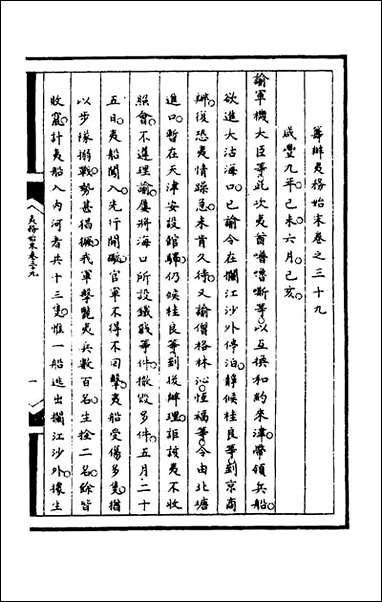 籌辦夷務始末卷之三十九
咸豐九年己未六月己亥
諭軍機大臣等此次夷酋嚕嘶等以互換和約來津帶領兵船
欲進大沽海口已諭令在攔江沙外停泊靜候桂良等到京商
辦後恐夷情躁急未肯久待又諭僧格林沁恒福等令由北塘
進口暫在天津安設館驛仍候桂良等到後辦理詎該夷不收
照會不遵理諭屢將海口所設鐵戧等件撤毀多件五月二十
五日夷船闖入先行開礮官軍不得不回擊夷船受傷多隻猶
以步隊搦戰勢甚猖獗我軍擊斃夷兵數百名生擒二名餘皆
收竄計夷船入內河者共十三隻惟一船逃出攔江沙外據生
夷務始末卷三十九
一